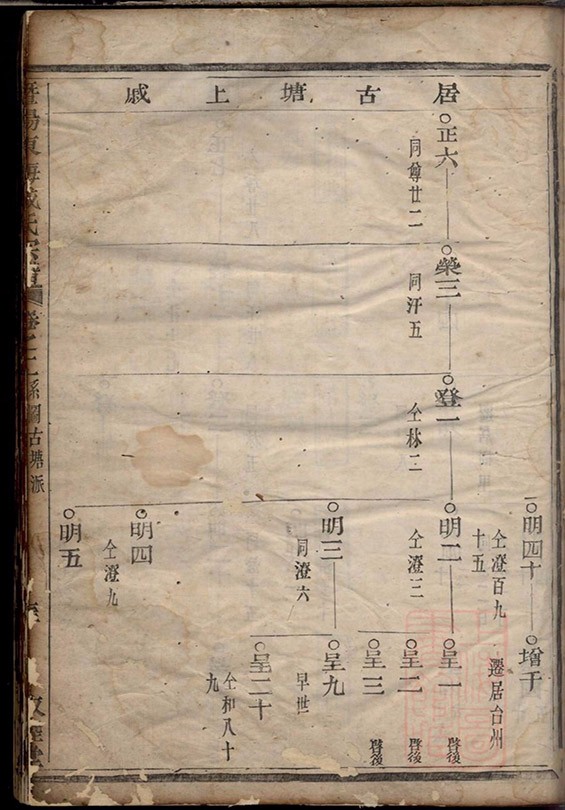 居古塘上戚
正六
同尊廿二
榮三
同汗五
登一
仝林二
明四十
仝澄百九
十五
增于
遷居台州
明二
仝澄三
呈一
啓後
呈二
啓後
呈三
啓後
明三
同澄六
呈九
早世
呈二十
仝和八十
九
明四
仝澄九
明五
暨陽東海戚氏宗譜
系圖古塘派